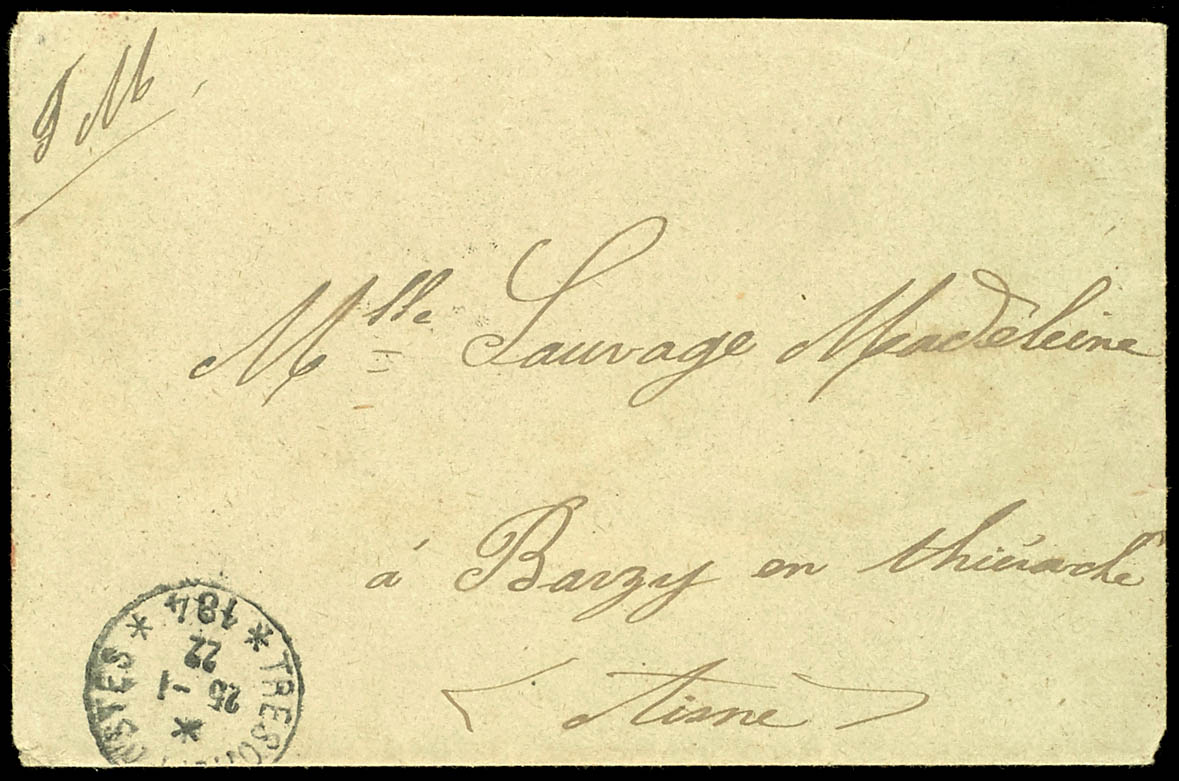 F M
Mlle Sauvage Madeleine
à Barzy en thiérache
(Aisne)
TRESOR POSTES
* 184 *
*
25 -1
22